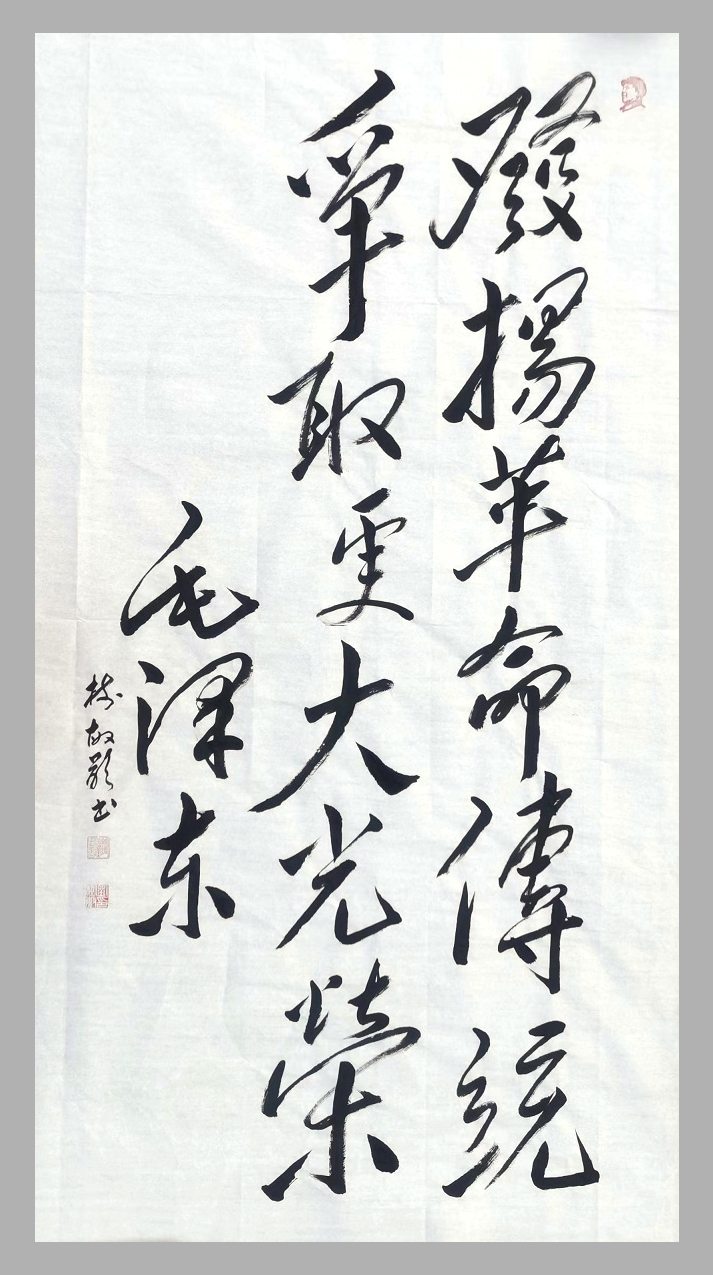 發揚革命傳統
爭取更大光榮
毛澤东
书